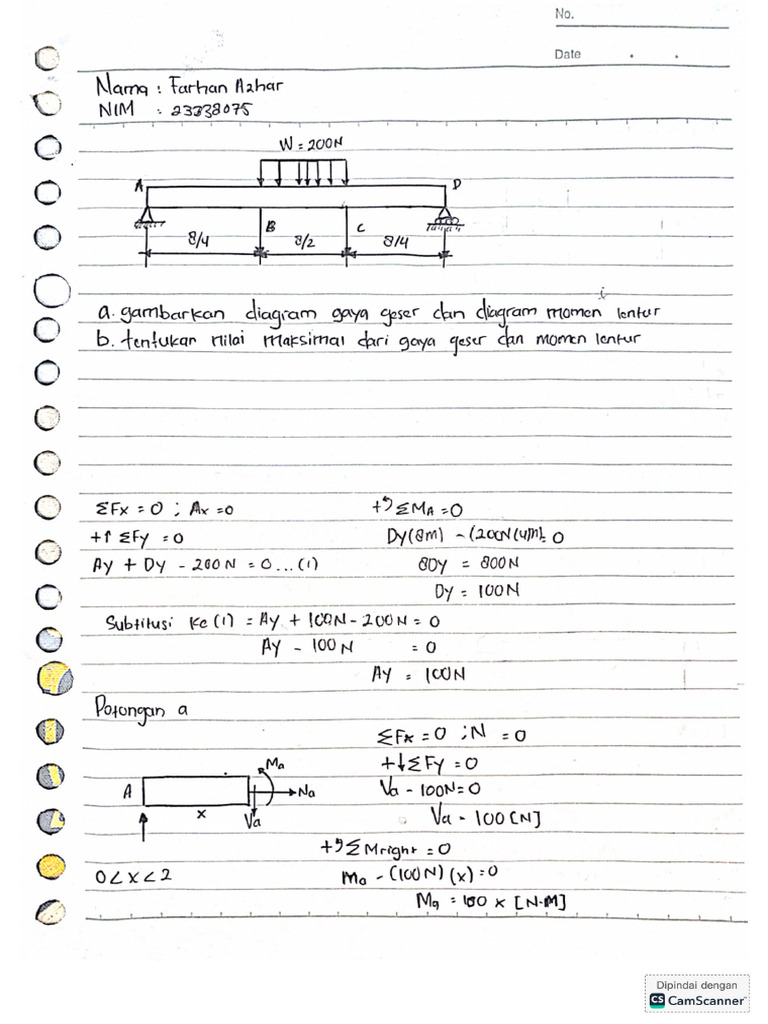 No.
Date
Nama : Farhan Azhar
NIM : 23338075
W = 200N
A
D
B
C
8/4
8/2
8/4
a. gambarkan diagram gaya geser dan diagram momen lentur
b. tentukan nilai maksimal dari gaya geser dan momen lentur
ΣFx = 0 ; Ax = 0
+↑ ΣFy = 0
Ay + Dy - 200N = 0 ... (1)
+↺ ΣMA = 0
Dy(8m) - (200N(4)m) = 0
8Dy = 800N
Dy = 100N
Subtitusi ke (1) = Ay + 100N - 200N = 0
Ay - 100N = 0
Ay = 100N
Potongan a
ΣFx = 0 ; N = 0
+↓ ΣFy = 0
Va - 100N = 0
Va = 100 [N]
A
x
Ma
Na
Va
0 < x < 2
+↺ ΣMright = 0
Ma - (100N) (x) = 0
Ma = 100 x [N.M]
Dipindai dengan
CS CamScanner